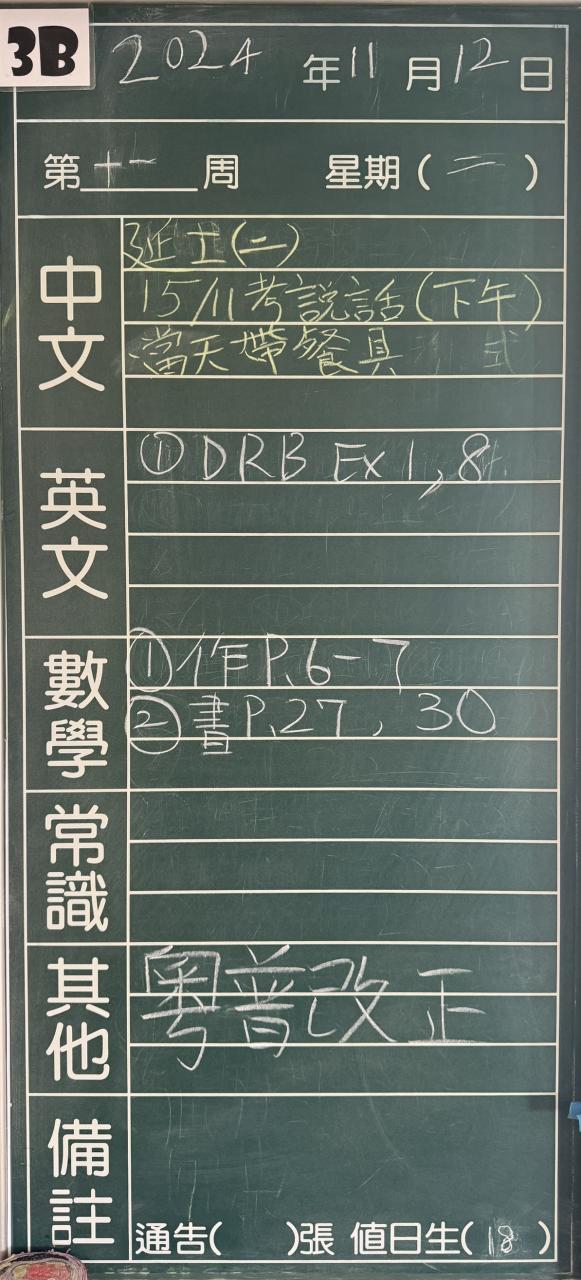 3B
2024年11月12日
第十一周 星期(二)
中文
延工(二)
15/11考說話(下午)
當天帶餐具
英文
① DRB Ex 1, 8
數學
① 作P.6-7
② 書P.27, 30
常識
其他
粵普改正
備註
通告( )張 值日生(18)